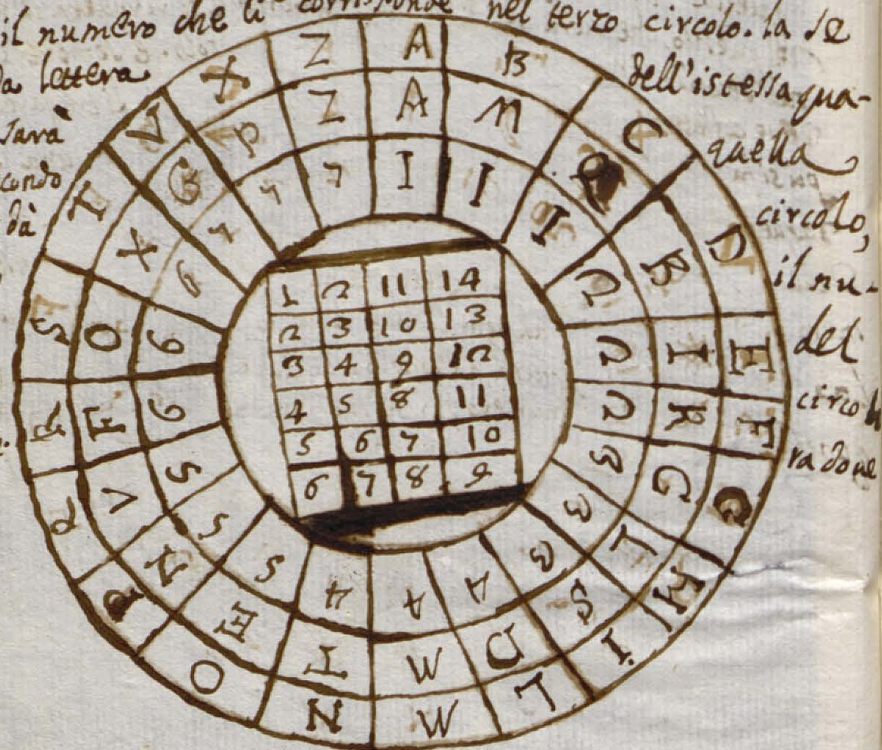 il numero che li corrisponde nel terzo circolo. la se
da lettera dell'istessa qua-
sarà quella
condo circolo,
dà il nu-
del
circolo
Z A B C D E F G H I L M N O P Q R S T V X
Z A M Q B I R G L S D M T E N V F O X G P
7 7 I I I 2 2 2 3 3 3 4 4 4 5 5 5 6 6 6 7
1 2 11 14
2 3 10 13
3 4 9 12
4 5 8 11
5 6 7 10
6 7 8 9